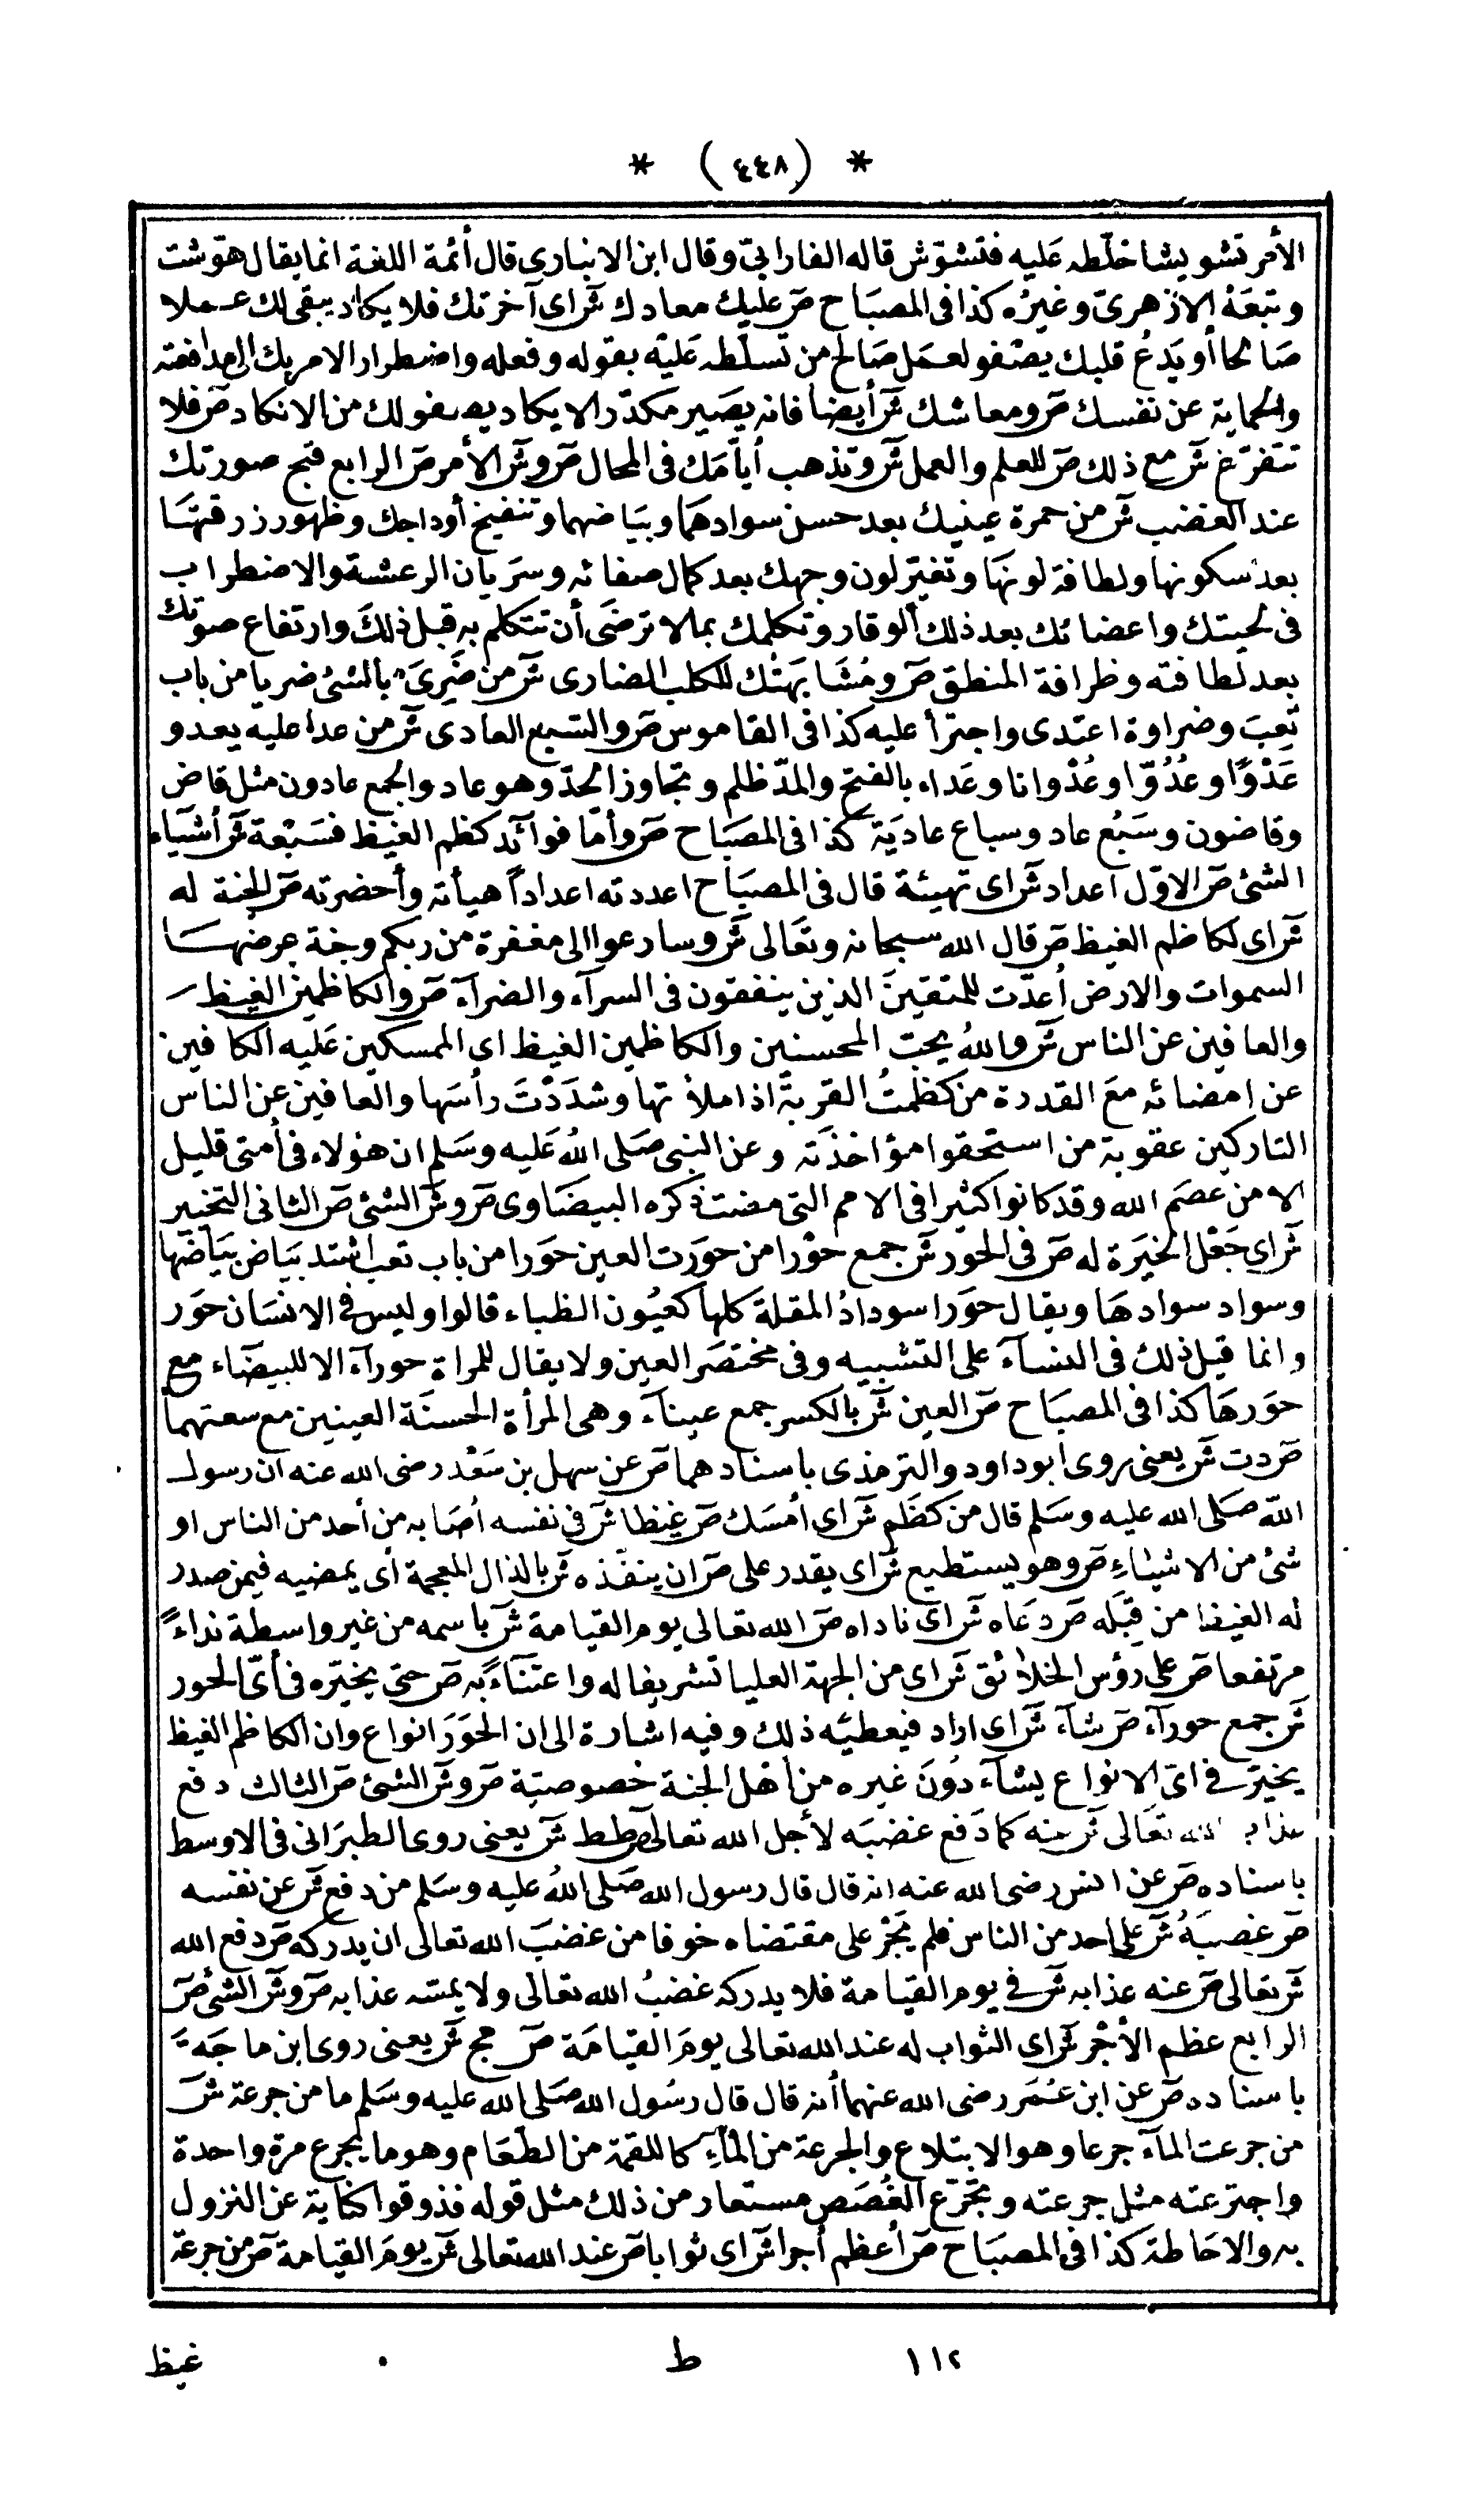 * (٤٤٨) *
الأمر تشويشا خلّطه عَليه فتشوّش قاله الفارابىّ وقال ابن الانبارى قال أئمة اللغة انما يقال هوّشت
وتبعَهُ الازهرىّ وغيرُه كذا فى المصبَاح صَ عليك معادك شَ اى آخرتك فلا يكاد يبقى لك عملا
صَالحا أو يَدعُ قلبك يصْفو لعمَل صَالح من تسلّطه عَليْه بقوله وفعله واضطرار الامر بك الى مدافعته
والحماية عن نفسك صَ ومعاشك شَ أيضا فانه يصَير مكدّرا لا يكاد يصفو لك من الانكاد صَ فلا
تتفرّغ شَ مع ذلك صَ للعلم والعمل شَ وتذهب أيامَك فى المحال صَ وشَ الأمر صَ الرابع قبح صورتك
عند الغضب شَ من حمرة عينيك بعد حسن سوادهمَا وبيَاضهما وتنفيخ أوداجك وظهور زرقتهَا
بعد سكونها ولطافة لونهَا وتغيّر لون وجهك بعد كمال صفائه وسرَيان الرعشة والاضطراب
فى لحيتك واعضائك بعد ذلك ألوقار وتكلمك بما لا ترضَى أن تتكلم به قبل ذلكَ وارتفاع صوتك
بعد لطافته وظرافة المنطق صَ ومُشَابهَتْك للكلب الضارى شَ من ضَرِىَ بالشئ ضريا من باب
تَعِبَ وضراوة اعتدى واجترأ عليه كذا فى القاموس صَ والسّبع العادى شَ من عدا عليه يعدو
عَدْوًا وعُدُوّا وعُدْوانا وعَداء بالفتح والمدّ ظلم وتجاوز الحدّ وهو عاد والجمع عادون مثل قاض
وقاضون وسَبُع عاد وسباع عاديَة كذا فى المصبَاح صَ وأمّا فوائد كظم الغيظ فسَبْعة شَ أشيَاء
الشئ صَ الاوّل اعداد شَ اى تهيئة قال فى المصبَاح اعددته اعداداً هيأته وأحضرته صَ الجنة له
شَ اى لكاظم الغيظ صَ قال الله سبحانه وتعَالى شَ وسارعوا الى مغفرة من ربكم وجنة عرضهَا
السموات والارض أعدّت للمتقينَ الذين ينفقون فى السرآء والضرآء صَ والكاظمين الغيظ
والعافين عن الناس شَ واللهُ يحبّ المحسنين والكاظمين الغيظ اى الممسكين عَليه الكافين
عن امضائه معَ القدرة من كظمتُ القربة اذا ملأتها وشدَدْتَ رأسَها والعافين عن الناس
التاركين عقوبة من استحقوا مؤاخذَته وعن النبى صَلى اللهُ عَليه وسَلم ان هؤلاء فى أمتى قليل
الا من عصَم الله وقد كانوا كثيرا فى الامم التى مضت ذكره البيضَاوى صَ وشَ الشئ صَ الثانى التخيير
شَ اى جَعْل الخيَرة له صَ فى الحور شَ جمع حوْرا من حورَت العين حوَرا من باب تعب اشتد بيَاض بيَاضها
وسواد سوادهَا ويقال حوَرا سودادُ المقلة كلها كعيُون الظباء قالوا وليس فى الانسَان حوَر
وانما قيل ذلك فى النسآء على التشبيه وفى مختصَر العين ولا يقال للمراة حورآء الا للبيضَاء مع
حوَرهَا كذا فى المصبَاح صَ العين شَ بالكسر جمع عينآء وهى المرأة الحسنَة العينين مع سعتهما
صَ دت شَ يعنى روى ابو داود والترمذى باسنادهما صَ عن سهل بن سَعْد رضى الله عنه ان رسول
اللهِ صَلى الله عليه وسَلم قال من كظَم شَ اى أمسَك صَ غيظا شَ فى نفسه أصَابه من أحد من الناس او
شئ من الاشياءِ صَ وهو يستطيع شَ اى يقدر على صَ ان ينفّذه شَ بالذال المعجمة أى يمضيه فيمن صدر
له الغيظ من قِبَله صَ دعَاه شَ اى ناداه صَ الله تعالى يوم القيامة شَ باسمه من غير واسطة نداءً
مرتفعا صَ على رؤس الخلائق شَ اى من الجهة العليا تشريفا له واعتنَاءً به صَ حتى يخيّره فى أىّ الحور
شَ جمع حورآء صَ شآء شَ اى اراد فيعطيَه ذلك وفيه اشارة الى ان الحوَرَ انواع وان الكاظم الغيظ
يخيرّ فى اىّ الانواع يشآء دُونَ غيره من أهل الجنة خصوصيّة صَ وشَ الشئ صَ الثالث دفع
عذاب الله تعَالى شَ عنه كما دَفع غضبَه لأجل الله تعالى صَ طط شَ يعنى روى الطبرَانى فى الاوسط
باسناده صَ عن انس رضى الله عنه انه قال قال رسول الله صَلى اللهُ عليه وسَلم من دفع شَ عن نفسه
صَ غضبَهُ شَ على احد من الناس فلم يَجْر على مقتضاه خوفا من غضبَ الله تعالى ان يدركه صَ دفع الله
شَ تعالى صَ عنه عذابه شَ فى يوم القيامة فلا يدركه غضبُ الله تعالى ولا يمسّه عذابه صَ وشَ الشئ صَ
الرابع عظم الأجْر شَ اى الثواب له عند الله تعالى يومَ القيامَة صَ مج شَ يعنى روى ابن ماجَة
باسناده صَ عن ابن عُمَر رضى الله عنهما أنه قال قال رسُول الله صَلى الله عليه وسَلم ما من جرعة شَ
من جرعت المآء جرعا وهو الابتلاع والجرعة من المآءِ كاللقمة من الطعَام وهو ما يجرع مرة واحدة
واجترعته مثل جرعته وتجرّع الغُصَص مستعار من ذلك مثل قوله فذوقوا كناية عن النزول
به والاحَاطة كذا فى المصبَاح صَ أعظم أجرا شَ اى ثوابا صَ عند الله تعالى شَ يومَ القيامة صَ من جرعة
١١٢ ط غيظ